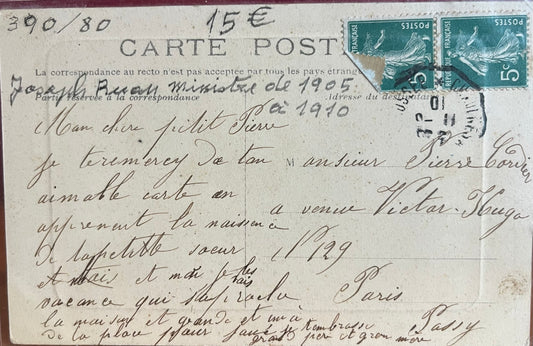 390/80
15€
CARTE POST
La correspondance au recto n'est pas acceptée par tous les pays étrang
Joseph Ruau ministre de 1905
à 1910
Partie réservée à la correspondance
Adresse du des
POSTES
FRANÇAISE
5c
POSTES
FRANÇAISE
5c
Mon chere petit Pierre
je te remercy de ton
aimable carte en
apprenent la naissence
de la petite soeur
et mais et moi
vacance qui
la maison et grande et
de la place pour tembrasse
grand père et gran mère
Monsieur Pierre Cordier
a venue Victor-Hugo
N°129
Paris
Passy